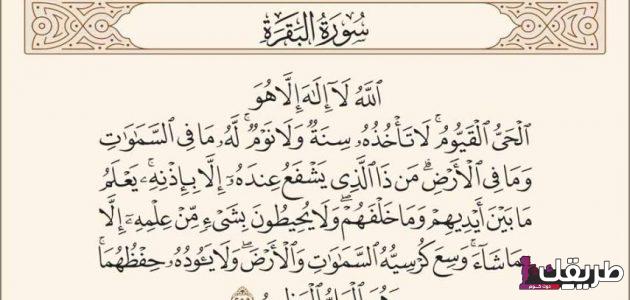 سُورَةُ الْبَقَرَةِ
ٱللَّهُ لَآ إِلَٰهَ إِلَّا هُوَ
ٱلْحَىُّ ٱلْقَيُّومُ ۚ لَا تَأْخُذُهُۥ سِنَةٌ وَلَا نَوْمٌ ۚ لَّهُۥ مَا فِى ٱلسَّمَٰوَٰتِ
وَمَا فِى ٱلْأَرْضِ ۗ مَن ذَا ٱلَّذِى يَشْفَعُ عِندَهُۥٓ إِلَّا بِإِذْنِهِۦ ۚ يَعْلَمُ
مَا بَيْنَ أَيْدِيهِمْ وَمَا خَلْفَهُمْ ۖ وَلَا يُحِيطُونَ بِشَىْءٍ مِّنْ عِلْمِهِۦٓ إِلَّا
بِمَا شَآءَ ۚ وَسِعَ كُرْسِيُّهُ ٱلسَّمَٰوَٰتِ وَٱلْأَرْضَ ۖ وَلَا يَـُٔودُهُۥ حِفْظُهُمَا ۚ
وَهُوَ ٱلْعَلِىُّ ٱلْعَظِيمُ
طريقك
دوت كوم